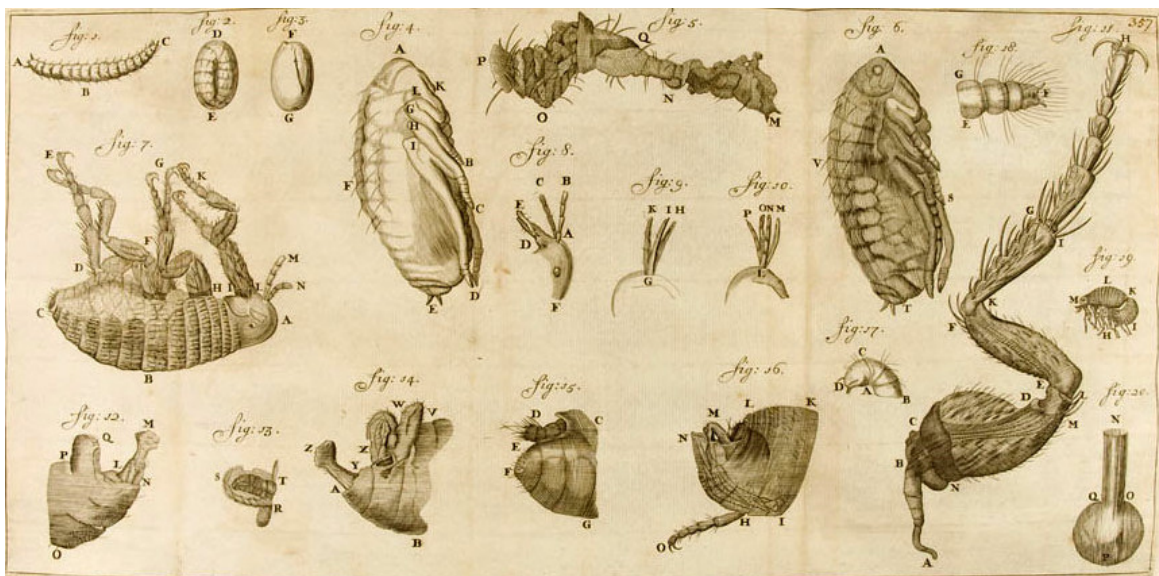 357
fig: 1.
A
B
C
fig: 2.
D
E
fig: 3.
F
G
fig: 4.
A
K
L
G
H
I
B
F
C
D
E
fig: 5.
P
Q
O
N
M
fig: 6.
A
V
S
T
fig: 18.
G
F
E
fig: 11.
H
G
I
K
F
E
D
L
M
C
B
N
A
fig: 7.
E
G
K
F
D
M
N
H I L
C
A
B
fig: 8.
C B
E
D
A
F
fig: 9.
K I H
G
fig: 10.
P O N M
L
fig: 19.
L
K
M
H
I
fig: 17.
C
D A B
fig: 12.
M
Q
P
L
N
O
fig: 13.
S
T
R
fig: 14.
W
V
Z
X
Y
A
B
fig: 15.
D
C
E
F
G
fig: 16.
L
K
M
N
H
I
O
fig: 20.
N
Q O
P